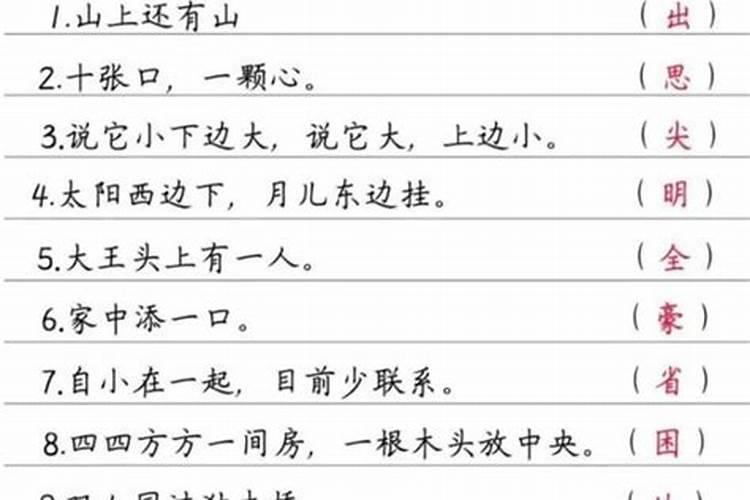 1.山上还有山 (出)
2.十张口，一颗心。 (思)
3.说它小下边大，说它大，上边小。 (尖)
4.太阳西边下，月儿东边挂。 (明)
5.大王头上有一人。 (全)
6.家中添一口。 (豪)
7.自小在一起，目前少联系。 (省)
8.四四方方一间房，一根木头放中央。 (困)